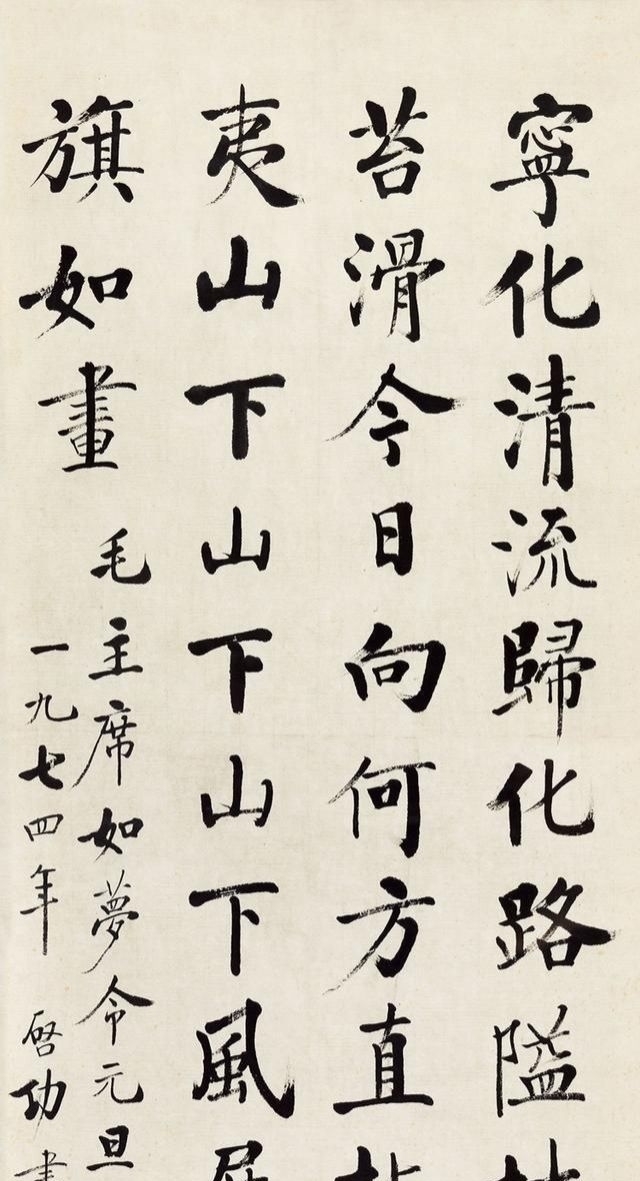 寧化清流歸化路隘
苔滑今日向何方直
夷山下山下山下風
旗如畫
毛主席如夢令元旦
一九七四年 啓功